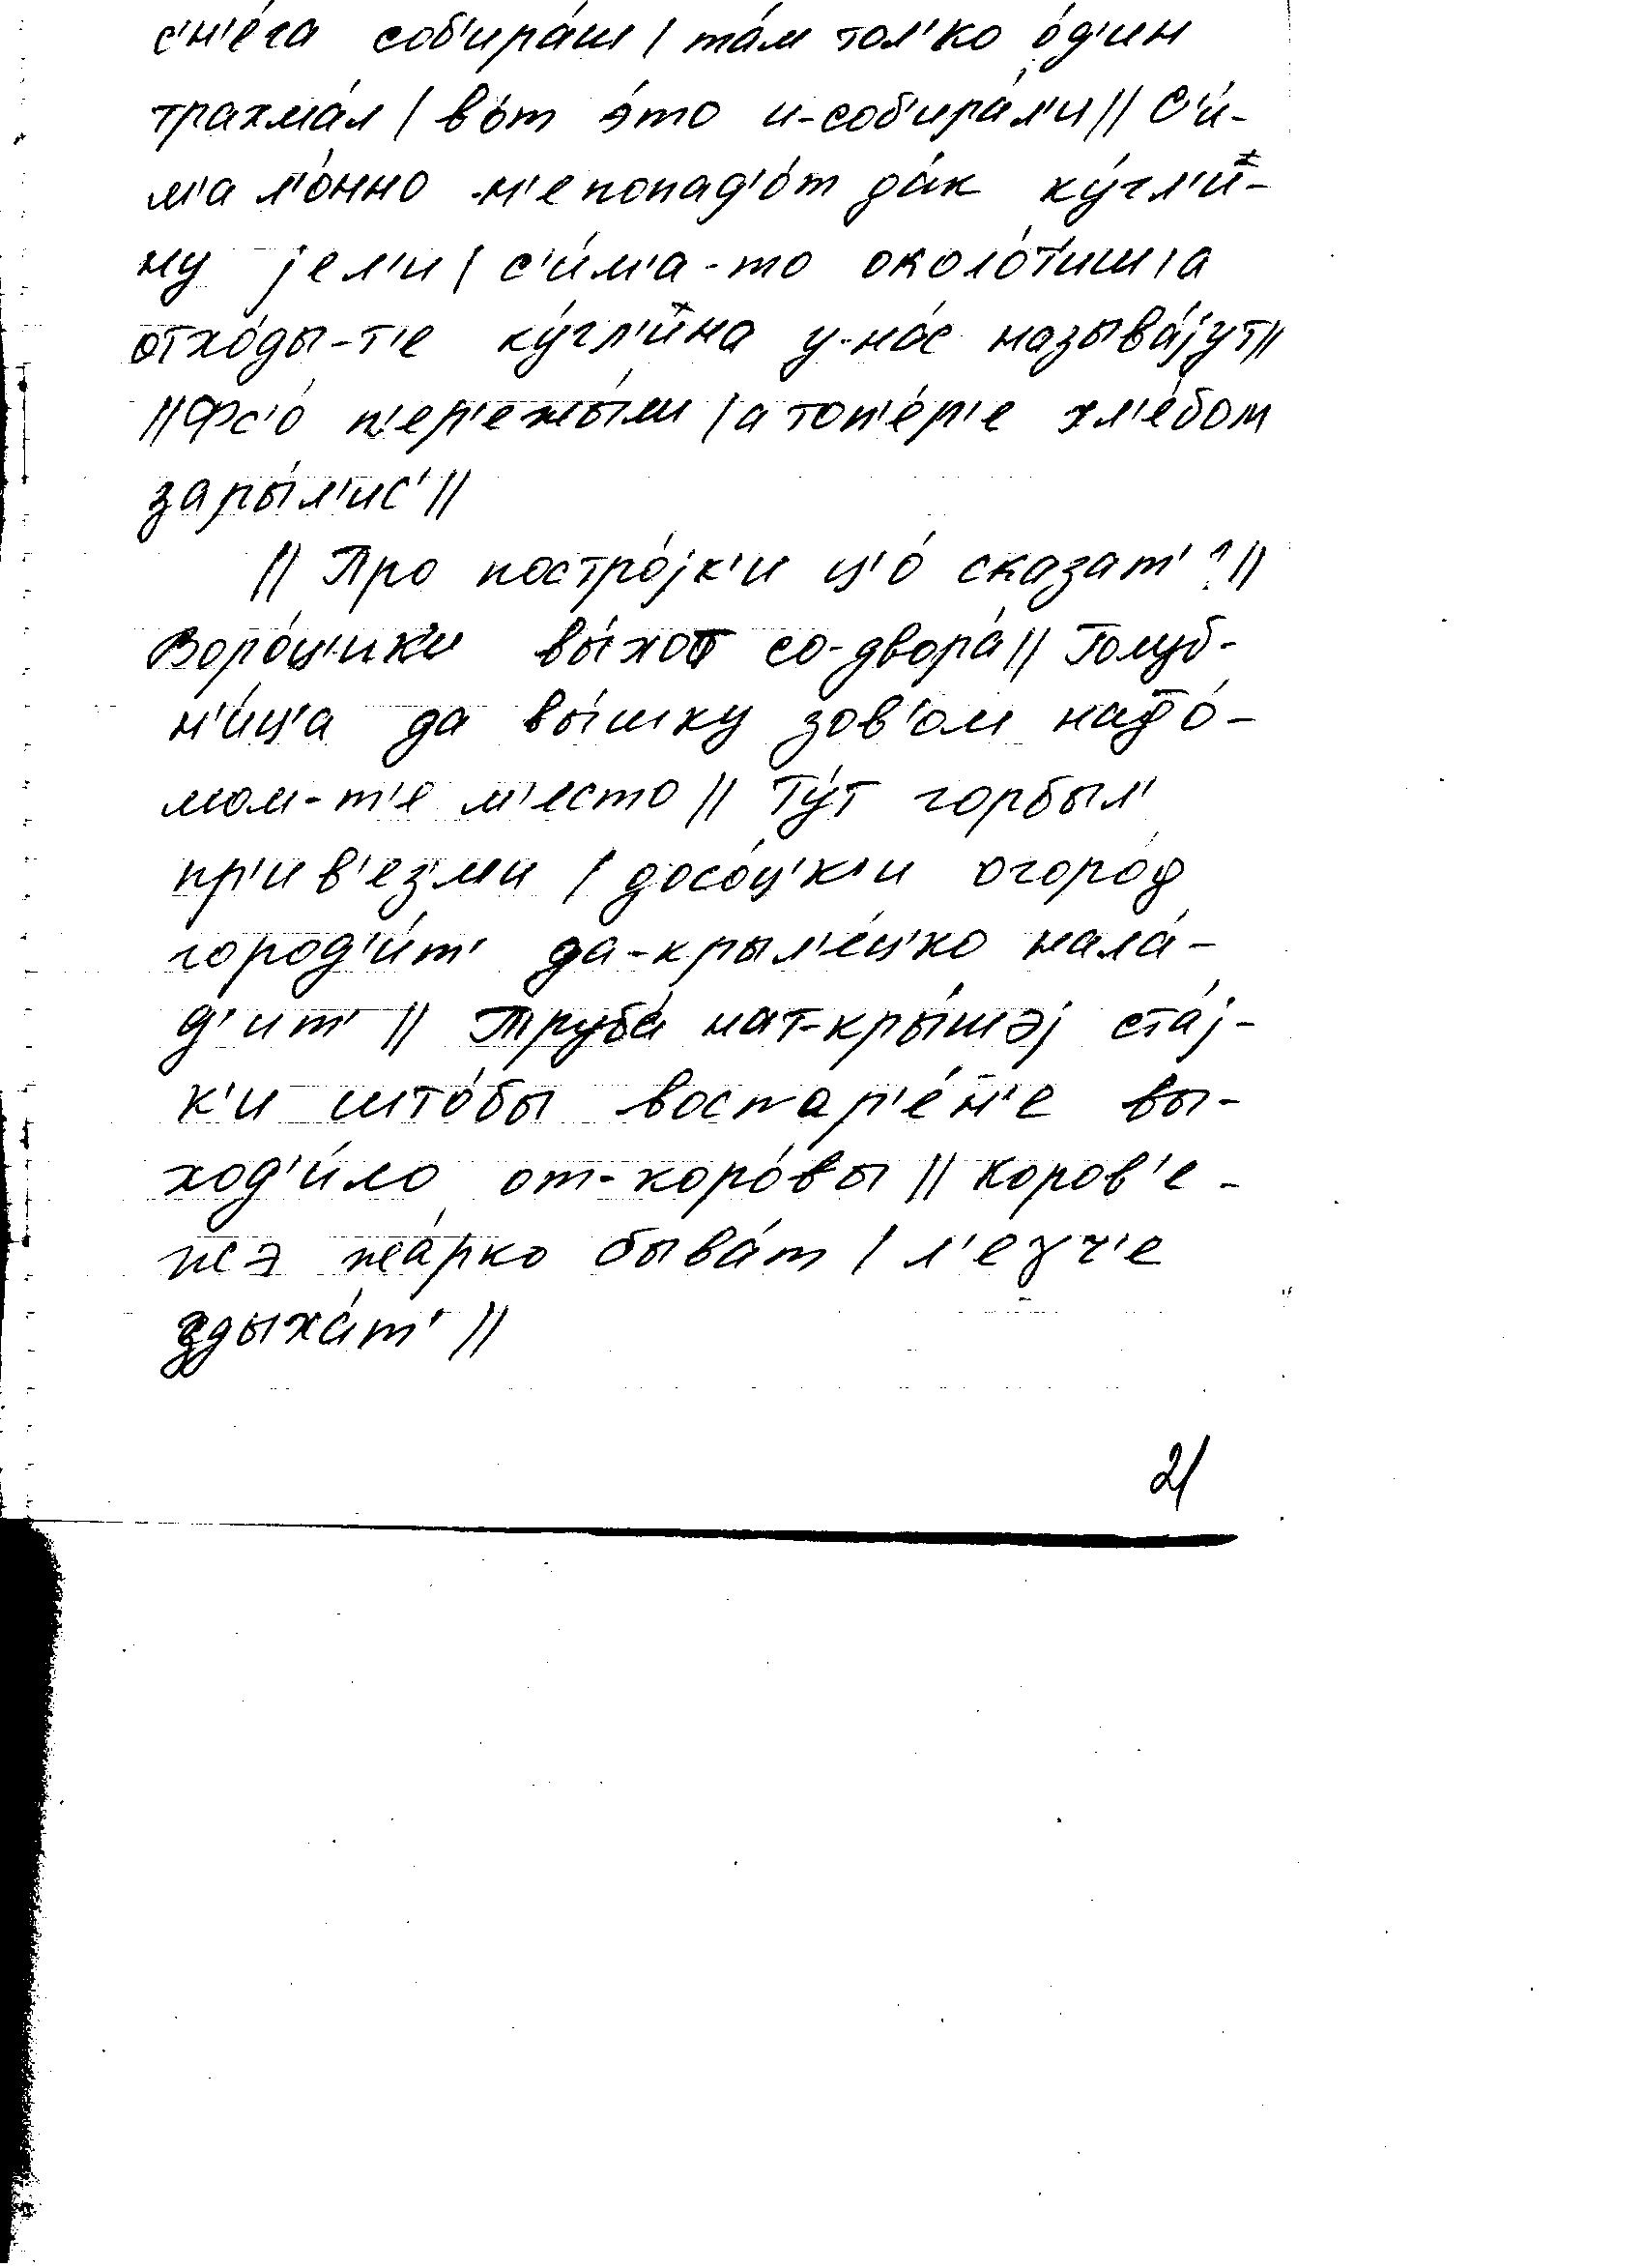 с'н'е́га соб'ира́ш / та́м тол'ко о́д'ин
трахма́л / во́т э́то и-соб'ира́л'и // С'и́-
м'а л'о́нно н'е попад'о́т да́к ку́гл'и-
ну јел'и / с'и́м'а-то около́т'иш / а
отхо́ды-т'е ку́гл'ина у-на́с называ́јут //
// Фс'о́ п'ер'ежы́ли / а топ'е́р'е хл'е́бом
зары́л'ис' //
// Про постро́јк'и ц'о́ сказат'? //
Воро́ц'ик'и вы́ход со-двора́ // Голуб-
н'и́ц'а да вы́шку зов'ом надо́-
мом-т'е м'есто // Ту́т горбыл'
пр'ив'езли / досо́ц'к'и огоро́д
город'и́т' да-крыл'е́ц'ко нала́-
д'ит' // Труба́ нат-кры́шэј ста́ј-
к'и што́бы воспар'е́н'е вы-
ход'и́ло от-коро́вы // Коров'е-
жэ жа́рко быва́т / л'егч'е
здыха́т' //
21